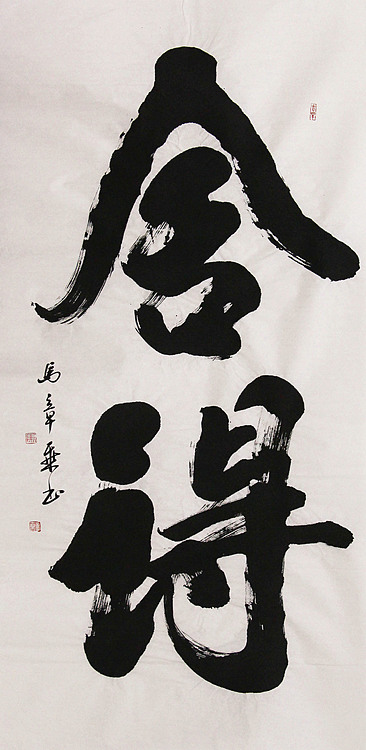 舍得
馬章乘书